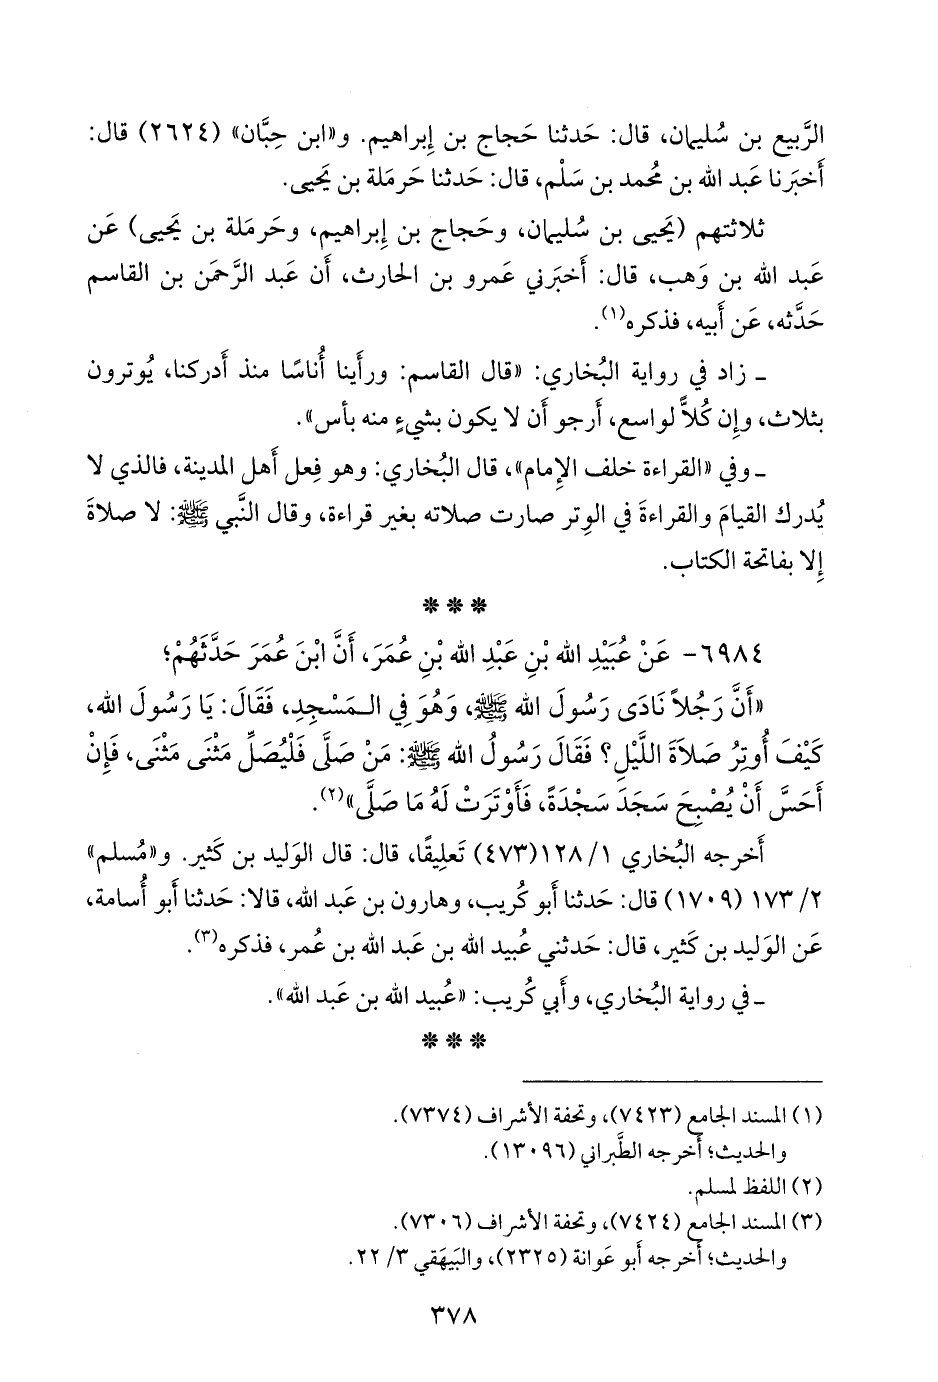 الرَّبيع بن سُليمان، قال: حَدثنا حَجاج بن إِبراهيم. و«ابن حِبَّان» (٢٦٢٤) قال:
أَخبَرنا عَبد الله بن مُحمد بن سَلْم، قال: حَدثنا حَرمَلة بن يَحيى.
ثلاثتهم (يَحيى بن سُليمان، وحَجاج بن إِبراهيم، وحَرمَلة بن يَحيى) عَن
عَبد الله بن وَهب، قال: أَخبَرني عَمرو بن الحارث، أَن عَبد الرَّحمَن بن القاسم
حَدَّثه، عَن أَبيه، فذكره(١).
ـ زاد في رواية البُخاري: «قال القاسم: ورأَينا أُناسًا منذ أَدركنا، يُوترون
بثلاث، وإِن كُلاًّ لواسع، أَرجو أَن لا يكون بشيءٍ منه بأس».
ـ وفي «القراءة خلف الإِمام»، قال البُخاري: وهو فِعل أَهل المدينة، فالذي لا
يُدرك القيامَ والقراءةَ في الوِتر صارت صلاته بغير قراءة، وقال النَّبي ﷺ: لا صلاةَ
إِلا بفاتحة الكتاب.
***
٦٩٨٤- عَنْ عُبَيْدِ الله بْنِ عَبْدِ الله بْنِ عُمَرَ، أَنَّ ابْنَ عُمَرَ حَدَّثَهُمْ؛
«أَنَّ رَجُلاً نَادَى رَسُولَ الله ﷺ، وَهُوَ فِي الـمَسْجِدِ، فَقَالَ: يَا رَسُولَ الله،
كَيْفَ أُوتِرُ صَلاَةَ اللَّيْلِ؟ فَقَالَ رَسُولُ الله ﷺ: مَنْ صَلَّى فَلْيُصَلِّ مَثْنَى مَثْنَى، فَإِنْ
أَحَسَّ أَنْ يُصْبِحَ سَجَدَ سَجْدَةً، فَأَوْتَرَتْ لَهُ مَا صَلَّى»(٢).
أَخرجه البُخاري ١/ ١٢٨(٤٧٣) تَعليقًا، قال: قال الوَليد بن كَثير. و«مُسلم»
٢/ ١٧٣ (١٧٠٩) قال: حَدثنا أَبو كُريب، وهارون بن عَبد الله، قالا: حَدثنا أَبو أُسامة،
عَن الوَليد بن كَثير، قال: حَدثني عُبيد الله بن عَبد الله بن عُمر، فذكره(٣).
ـ في رواية البُخاري، وأَبي كُريب: «عُبيد الله بن عَبد الله».
***
(١) المسند الجامع (٧٤٢٣)، وتحفة الأشراف (٧٣٧٤).
والحديث؛ أخرجه الطَّبراني (١٣٠٩٦).
(٢) اللفظ لمسلم.
(٣) المسند الجامع (٧٤٢٤)، وتحفة الأشراف (٧٣٠٦).
والحديث؛ أخرجه أبو عَوانة (٢٣٢٥)، والبَيهَقي ٣/ ٢٢.
٣٧٨